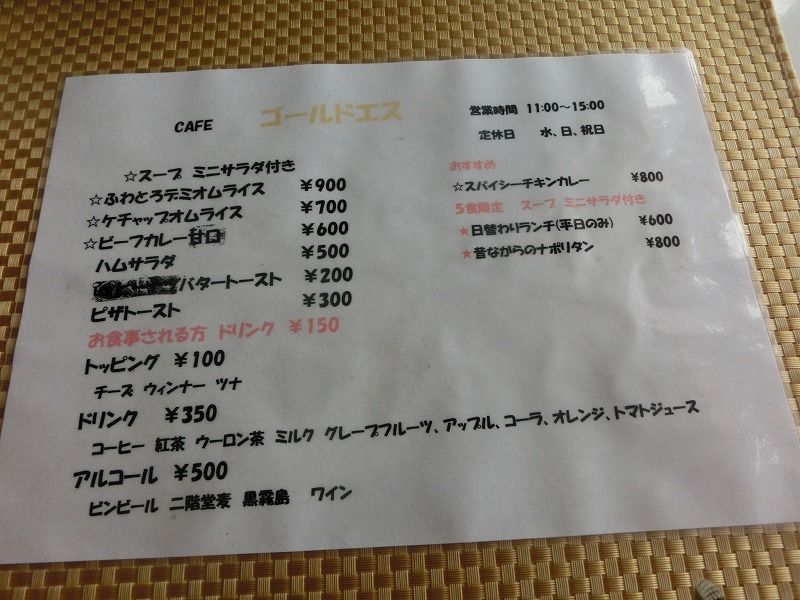 CAFE ゴールドエス
営業時間 11:00～15:00
定休日 水、日、祝日
☆スープ ミニサラダ付き
☆ふわとろデミオムライス ￥900
☆ケチャップオムライス ￥700
☆ビーフカレー甘口 ￥600
ハムサラダ ￥500
バタートースト ￥200
ピザトースト ￥300
お食事される方 ドリンク ￥150
トッピング ￥100
チーズ ウィンナー ツナ
ドリンク ￥350
コーヒー 紅茶 ウーロン茶 ミルク グレープフルーツ、アップル、コーラ、オレンジ、トマトジュース
アルコール ￥500
ビンビール 二階堂麦 黒霧島 ワイン
おすすめ
☆スパイシーチキンカレー ￥800
５食限定 スープ ミニサラダ付き
★日替わりランチ(平日のみ) ￥600
★昔ながらのナポリタン ￥800